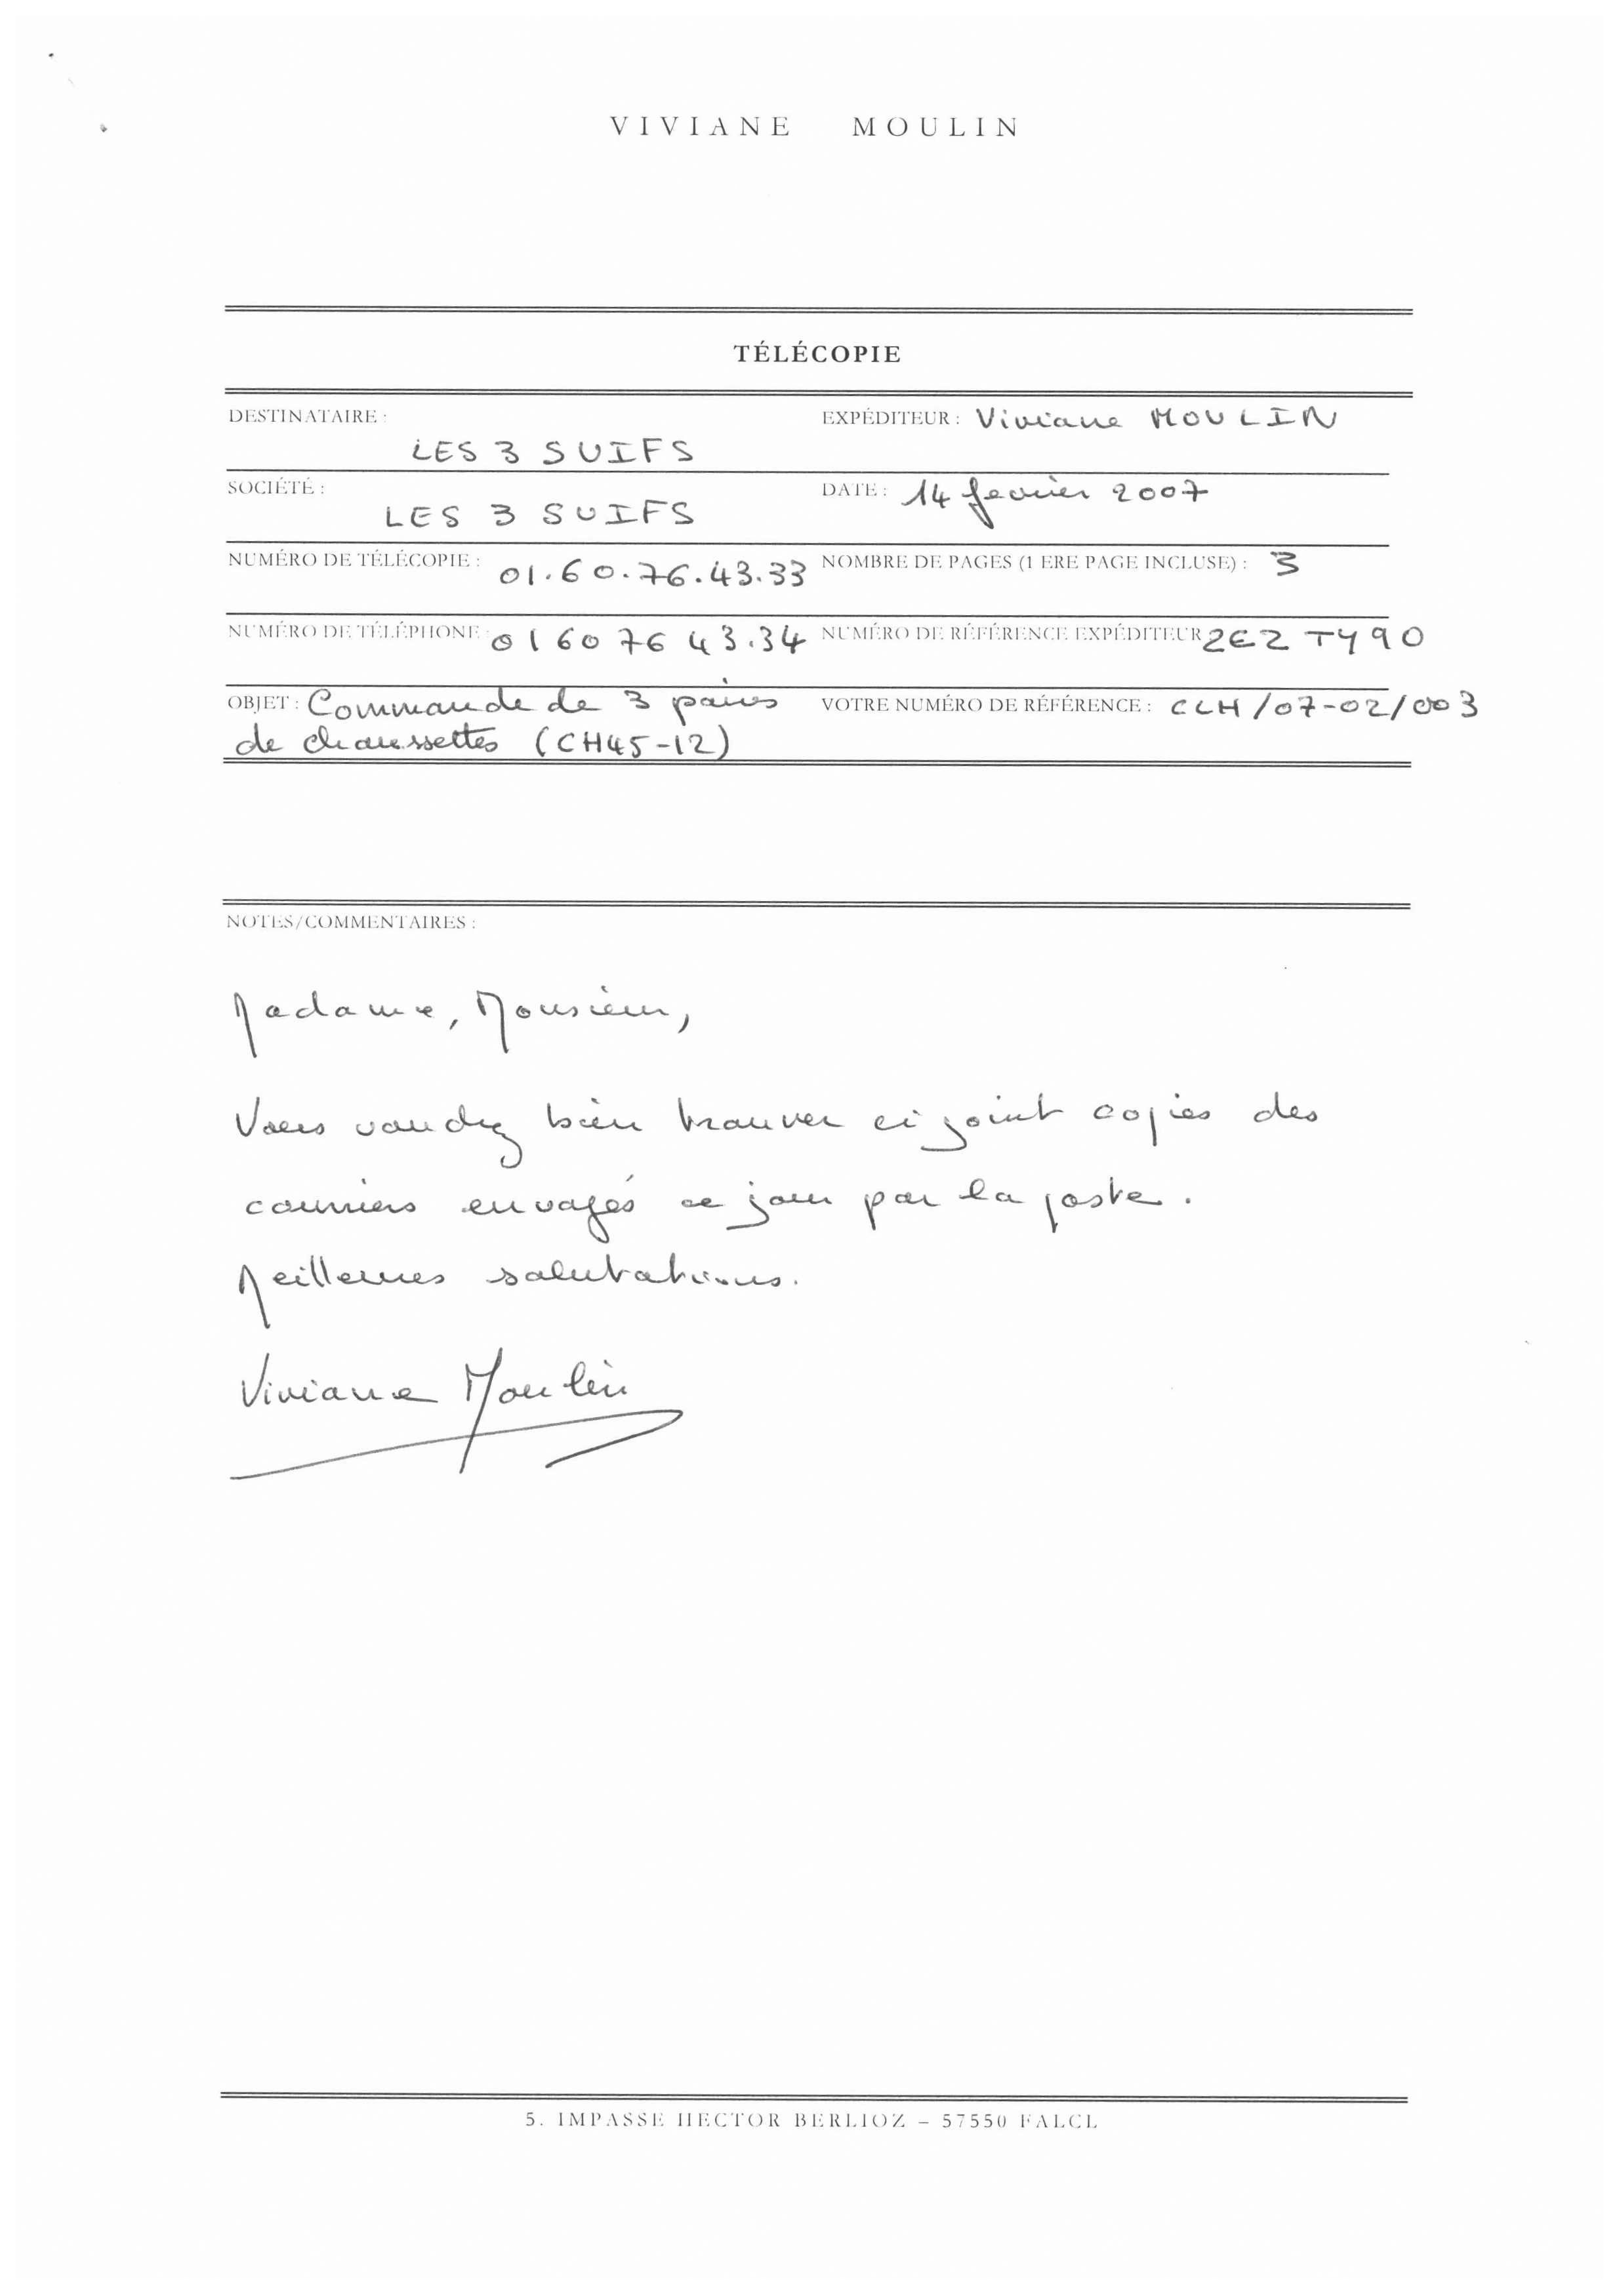 VIVIANE MOULIN
TÉLÉCOPIE
DESTINATAIRE :
LES 3 SUIFS
EXPÉDITEUR : Viviane MOULIN
SOCIÉTÉ :
LES 3 SUIFS
DATE : 14 fevrier 2007
NUMÉRO DE TÉLÉCOPIE : 01.60.76.43.33
NOMBRE DE PAGES (1 ERE PAGE INCLUSE) : 3
NUMÉRO DE TÉLÉPHONE : 01 60 76 43.34
NUMÉRO DE RÉFÉRENCE EXPÉDITEUR 2E2 TY90
OBJET : Commande de 3 paires
de chaussettes (CH45-12)
VOTRE NUMÉRO DE RÉFÉRENCE : CLH/07-02/003
NOTES/COMMENTAIRES :
Madame, Monsieur,
Vous voudrez bien trouver ci joint copies des
courriers envoyés ce jour par la poste.
Meilleures salutations.
Viviane Moulin
5. IMPASSE HECTOR BERLIOZ – 57550 FALCL